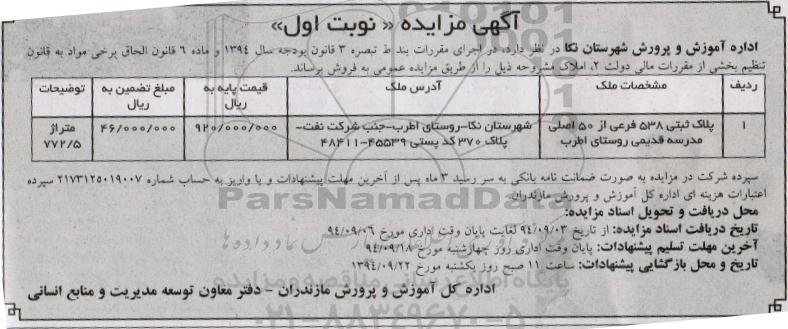 آگهی مزایده « نوبت اول»
اداره آموزش و پرورش شهرستان نکا در نظر دارد، در اجرای مقررات بند ط تبصره ۳ قانون بودجه سال ۱۳۹٤ و ماده ٦ قانون الحاق برخی مواد به قانون
تنظیم بخشی از مقررات مالی دولت ۲، املاک مشروحه ذیل را از طریق مزایده عمومی به فروش برساند.
ردیف مشخصات ملک آدرس ملک قیمت پایه به ریال مبلغ تضمین به ریال توضیحات
۱ پلاک ثبتی ۵۳۸ فرعی از ۵۰ اصلی شهرستان نکا-روستای اطرب-جنب شرکت نفت- ۹۲۰/۰۰۰/۰۰۰ ۴۶/۰۰۰/۰۰۰ متراژ
مدرسه قدیمی روستای اطرب پلاک ۳۷۰ کد پستی ۴۵۵۳۹-۴۸۴۱۱ ۷۷۲/۵
سپرده شرکت در مزایده به صورت ضمانت نامه بانکی به سر رسید ۳ ماه پس از آخرین مهلت پیشنهادات و یا واریز به حساب شماره ۲۱۷۳۱۲۵۰۱۹۰۰۷ سپرده
اعتبارات هزینه ای اداره کل آموزش و پرورش مازندران.
محل دریافت و تحویل اسناد مزایده:
تاریخ دریافت اسناد مزایده: از تاریخ ۹٤/۰۹/۰۳ لغایت پایان وقت اداری مورخ ۹٤/۰۹/۰٦
آخرین مهلت تسلیم پیشنهادات: پایان وقت اداری روز چهارشنبه مورخ ۹٤/۰۹/۱۸
تاریخ و محل بازگشایی پیشنهادات: ساعت ۱۱ صبح روز یکشنبه مورخ ۱۳۹٤/۰۹/۲۲
اداره کل آموزش و پرورش مازندران - دفتر معاون توسعه مدیریت و منابع انسانی
ParsNamadData
۰۲۱-۸۸۳۴۹۶۷۰-۵